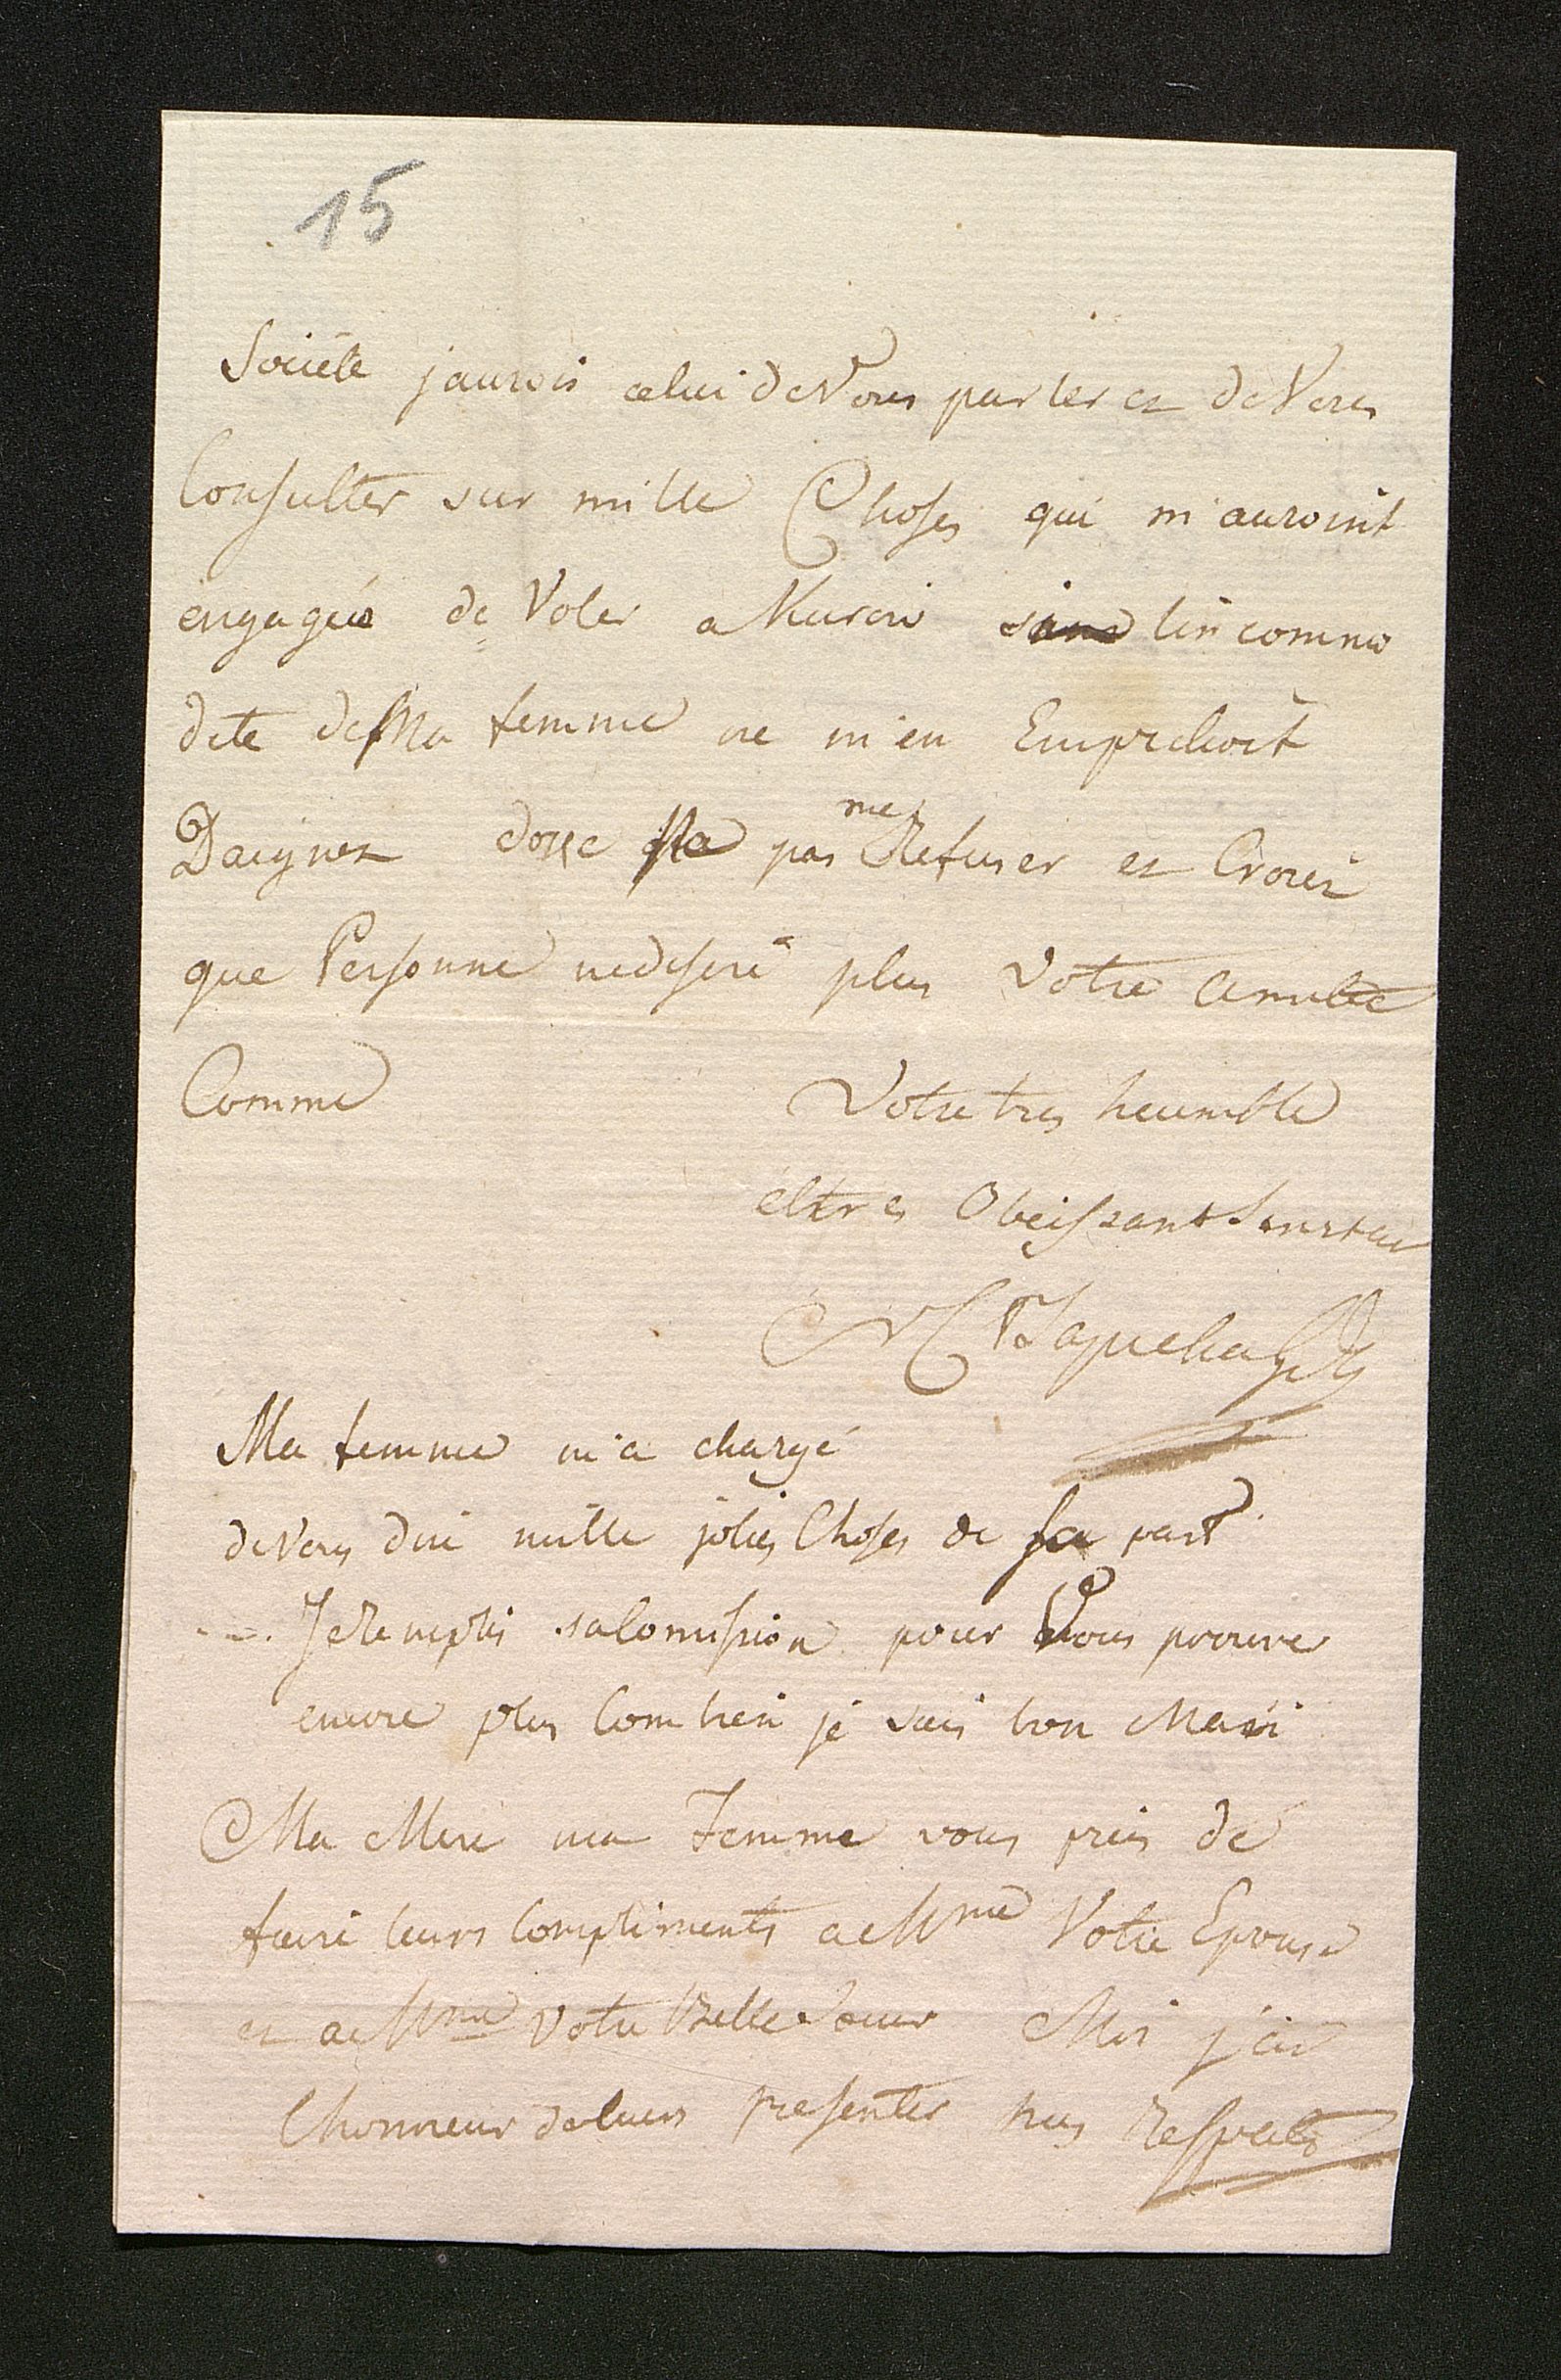 15
Societé jaurois celui de Vous parler et de Vous
Consulter sur mille Choses qui m'auroint
engagée de Voler a Kurow lincommo
dite de Ma femme ne m'en Empechoit
Daignez donc pas me Refuser et Croiés
que Personne nedesire plus Votre Amitie
Comme
Votre tres heumble
et tres Obeissant
Ma femme m'a chargé
de Vous dire mille jolies Choses de sa part
Je Remplis sa Comission pour Vous prouver
encore plus Combien je suis bon Mari
Ma Mere ma Femme vous pries de
faire leurs Compliments a Mme Votre Epouse
et a Mme Votre Belle Soeur Moi j'ai
lhonneur de leurs presenter mes Respects